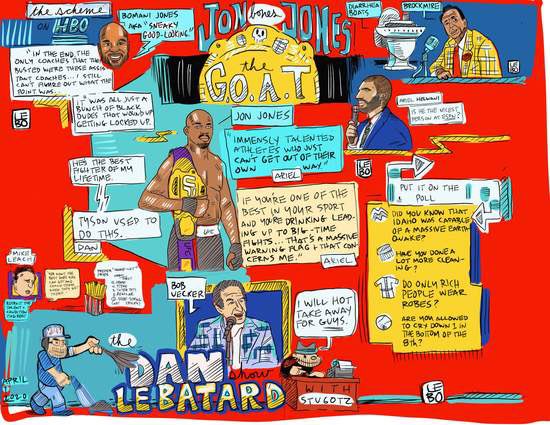 the scheme
ON HBO
BOMANI JONES
AKA "SNEAKY
GOOD-LOOKING"
"IN THE END, THE
ONLY COACHES THAT GET
BUSTED WERE THESE ASSIS
TANT COACHES... I STILL
CAN'T FIGURE OUT WHAT THE
POINT WAS.
IT WAS ALL JUST A
BUNCH OF BLACK
DUDES THAT WOUND UP
GETTING LOCKED UP.
LE
BO
JON bones JONES
the
G.O.A.T
JON JONES
"IMMENSLY TALENTED
ATHLETES WHO JUST
CAN'T GET OUT OF THEIR
OWN WAY"
ARIEL
DIARRHEA
BOATS
BROCKMIRE
LE
BO
ARIEL HELWANI
IS HE THE NICEST
PERSON AT ESPN?
LE
BO
HE'S THE BEST
FIGHTER OF MY
LIFETIME.
TYSON USED TO
DO THIS.
DAN
UFC
IF YOU'RE ONE OF THE
BEST IN YOUR SPORT
AND YOU'RE DRINKING LEAD-
ING UP TO BIG-TIME
FIGHTS... THAT'S A MASSIVE
WARNING FLAG & THAT CON-
CERNS ME."
ARIEL
PUT IT ON THE
POLL
DID YOU KNOW THAT
IDAHO WAS CAPABLE
OF A MASSIVE EARTH
QUAKE?
HAVE YOU DONE
A LOT MORE CLEAN-
ING?
DO ONLY RICH
PEOPLE WEAR
ROBES?
ARE YOU ALLOWED
TO CRY DOWN 1 IN
THE BOTTOM OF THE
8th?
MIKE
LEACH
BOB
UECKER
I WILL HOT
TAKE AWAY
FOR GUYS.
the
DAN
LE BATARD
show
WITH
STUGOTZ
APRIL
2020
LE
BO